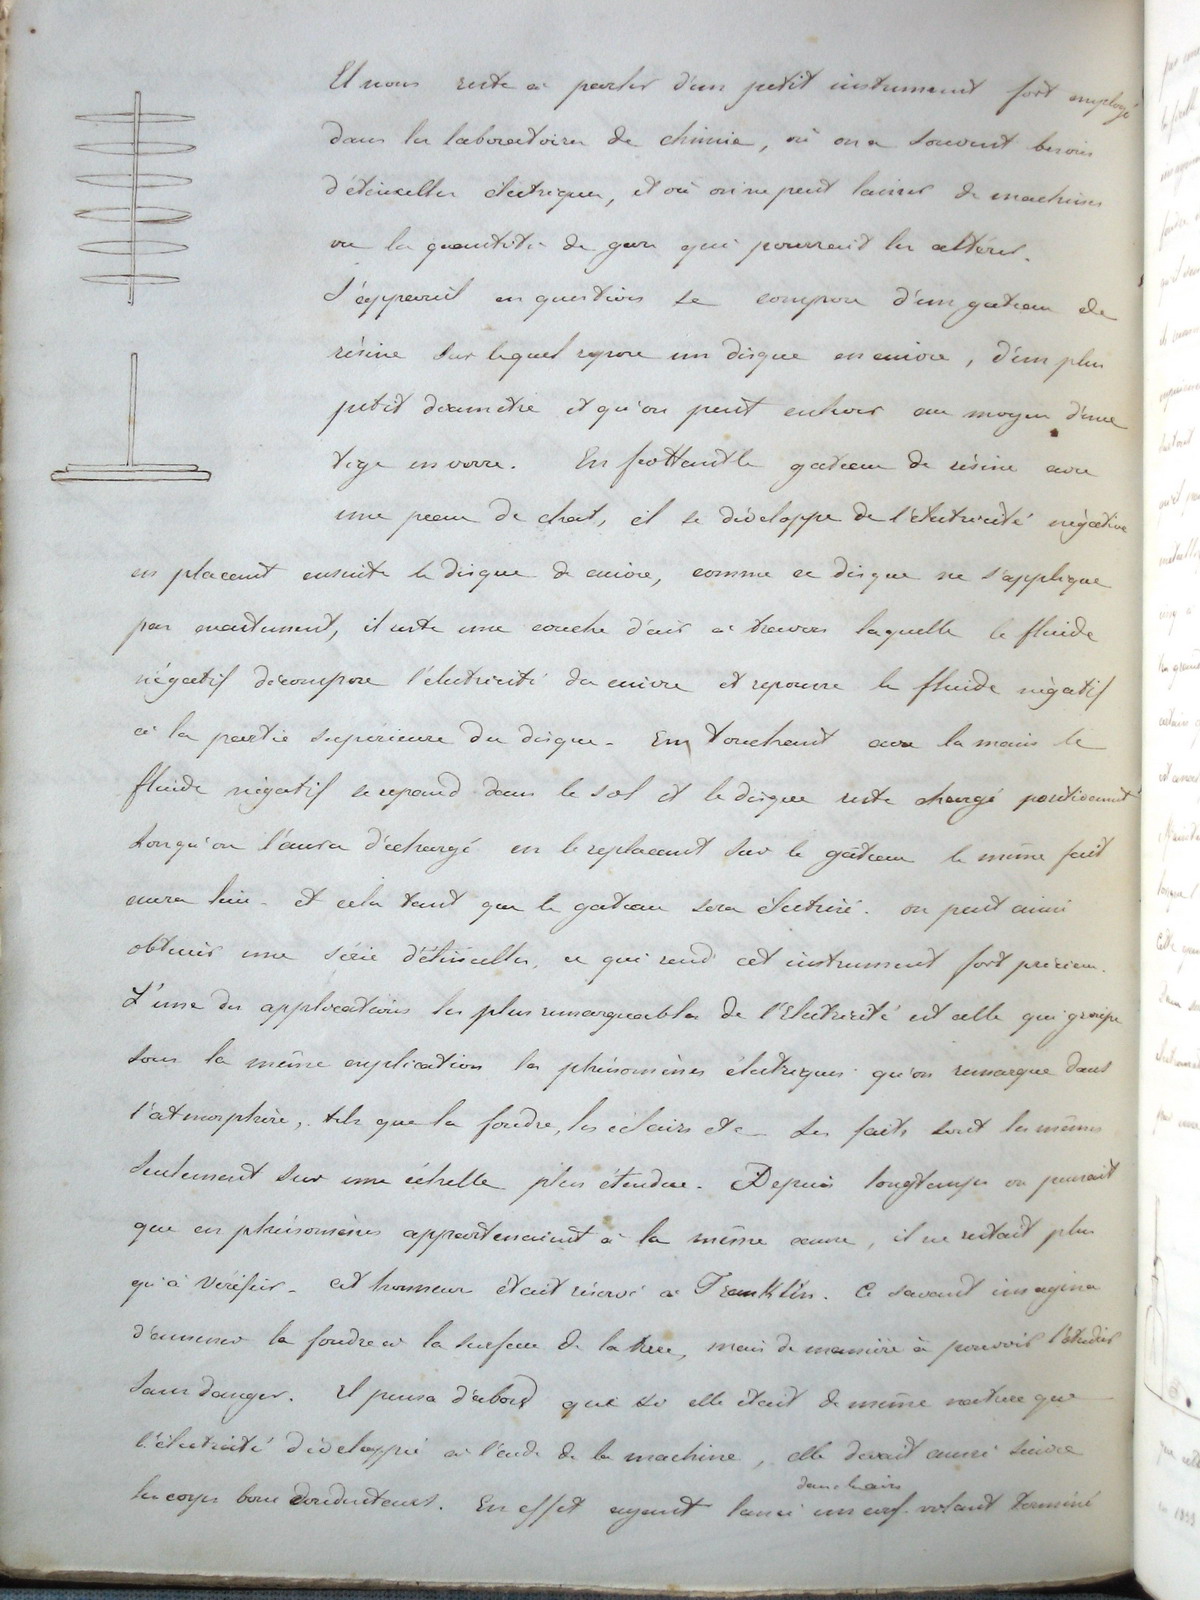 Il nous reste à parler d'un petit instrument fort employé
dans les laboratoires de chimie, où on a souvent besoin
d'étincelles électriques, et où on ne peut laisser de machines
vu la quantité de gaz qui pourrait les altérer.
L'appareil en question se compose d'un gateau de
résine sur lequel repose un disque en cuivre, d'un plus
petit diamètre et qu'on peut enlever au moyen d'une
tige en verre. En frottant le gateau de résine avec
une peau de chat, il se développe de l'électricité négative
en placant ensuite le disque de cuivre, comme ce disque ne s'applique
pas exactement, il reste une couche d'air à travers laquelle le fluide
négatif décompose l'électricité du cuivre et repousse le fluide négatif
à la partie supérieure du disque. En touchant avec la main le
fluide négatif se repand dans le sol et le disque reste chargé positivement
Lorsqu'on l'aura déchargé en le replacant sur le gâteau le même fait
aura lieu. et cela tant que le gateau sera électrisé. on peut ainsi
obtenir une série d'étincelles, ce qui rend cet instrument fort précieux.
L'une des applications les plus remarquables de l'électricité est celle qui groupe
sous la même explication les phénomènes électriques qu'on remarque dans
l'atmosphère, tels que la foudre, les éclairs etc Les faits sont les mêmes
seulement sur une échelle plus étendue. Depuis longtemps on pensait
que ces phénomènes appartenaient à la même cause, il ne restait plus
qu'à vérifier. cet honneur était réservé à Franklin. Ce savant imagina
d'amener la foudre à la surface de la terre, mais de manière à pouvoir l'étudier
sans danger. Il pensa d'abord que si elle était de même nature que
l'électricité développée à l'aide de la machine, elle devait aussi suivre
les corps bons conducteurs. En effet ayant lancé dans les airs un cerf-volant terminé